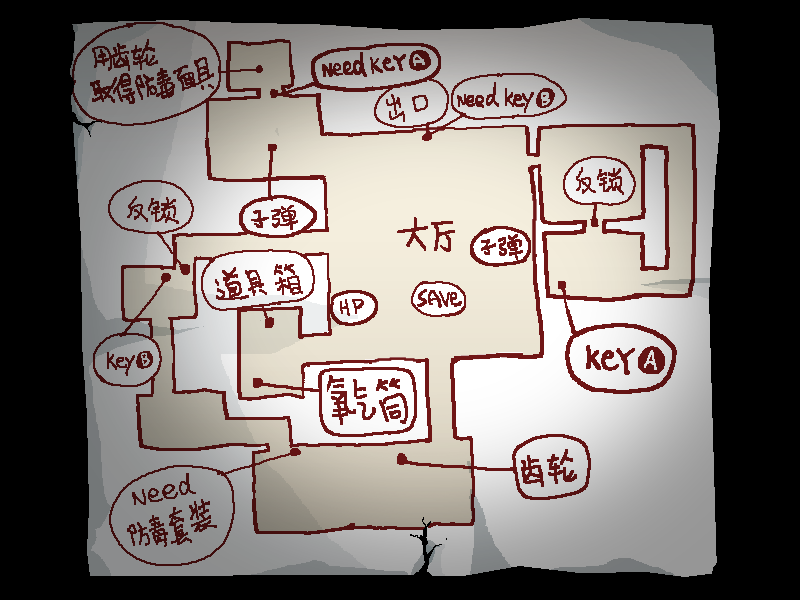 用齿轮
取得防毒面具
Need key A
出口
Need key B
反锁
反锁
子弹
大厅
子弹
道具箱
HP
SAVE
key B
key A
氧气筒
齿轮
Need
防毒套装